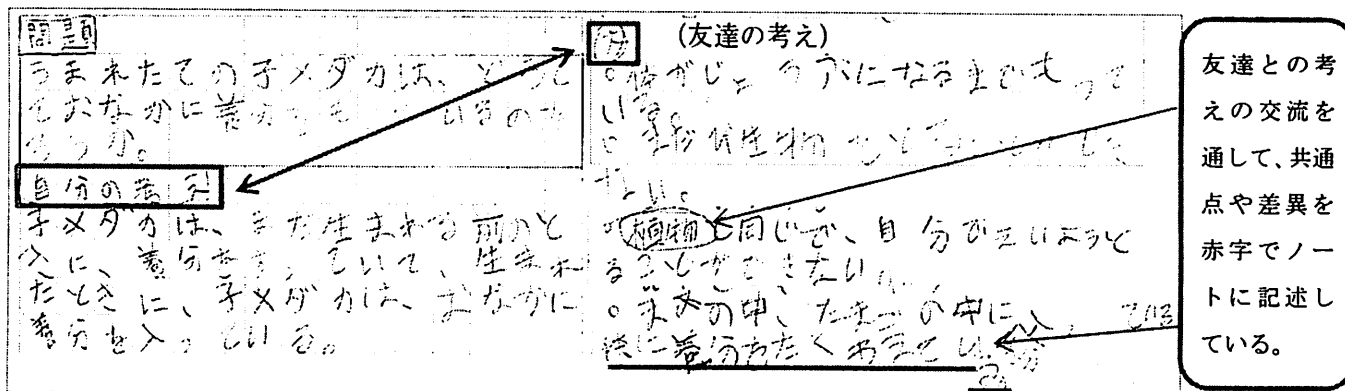 問題
うまれたての子メダカは、どうし
ておなかに養分をもっているのだ
ろうか。
自分の考え
子メダカは、まだ生まれる前のと
きに、養分を入っていて、生まれ
たときに、子メダカは、おなかに
養分を入っている。
(友達の考え)
体がじょうぶになるまでもって
いる。
まだ
ない。
植物と同じで、自分でえいようをと
ることができない。
中、たまごの中に入っている
養分をたくわえ
友達との考
えの交流を
通して、共通
点や差異を
赤字でノー
トに記述し
ている。